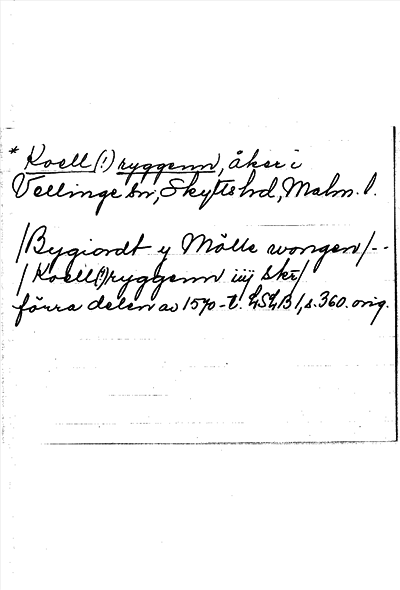 * Koell (!) ryggenn, åker i
Vellinge sn, Skytts hd, Malm. l.
/Bygiordt y Mölle wongen/--
/Koell(!)ryggenn iiij skr/
förra delen av 1570-t. LSLB 1, s. 360. orig.